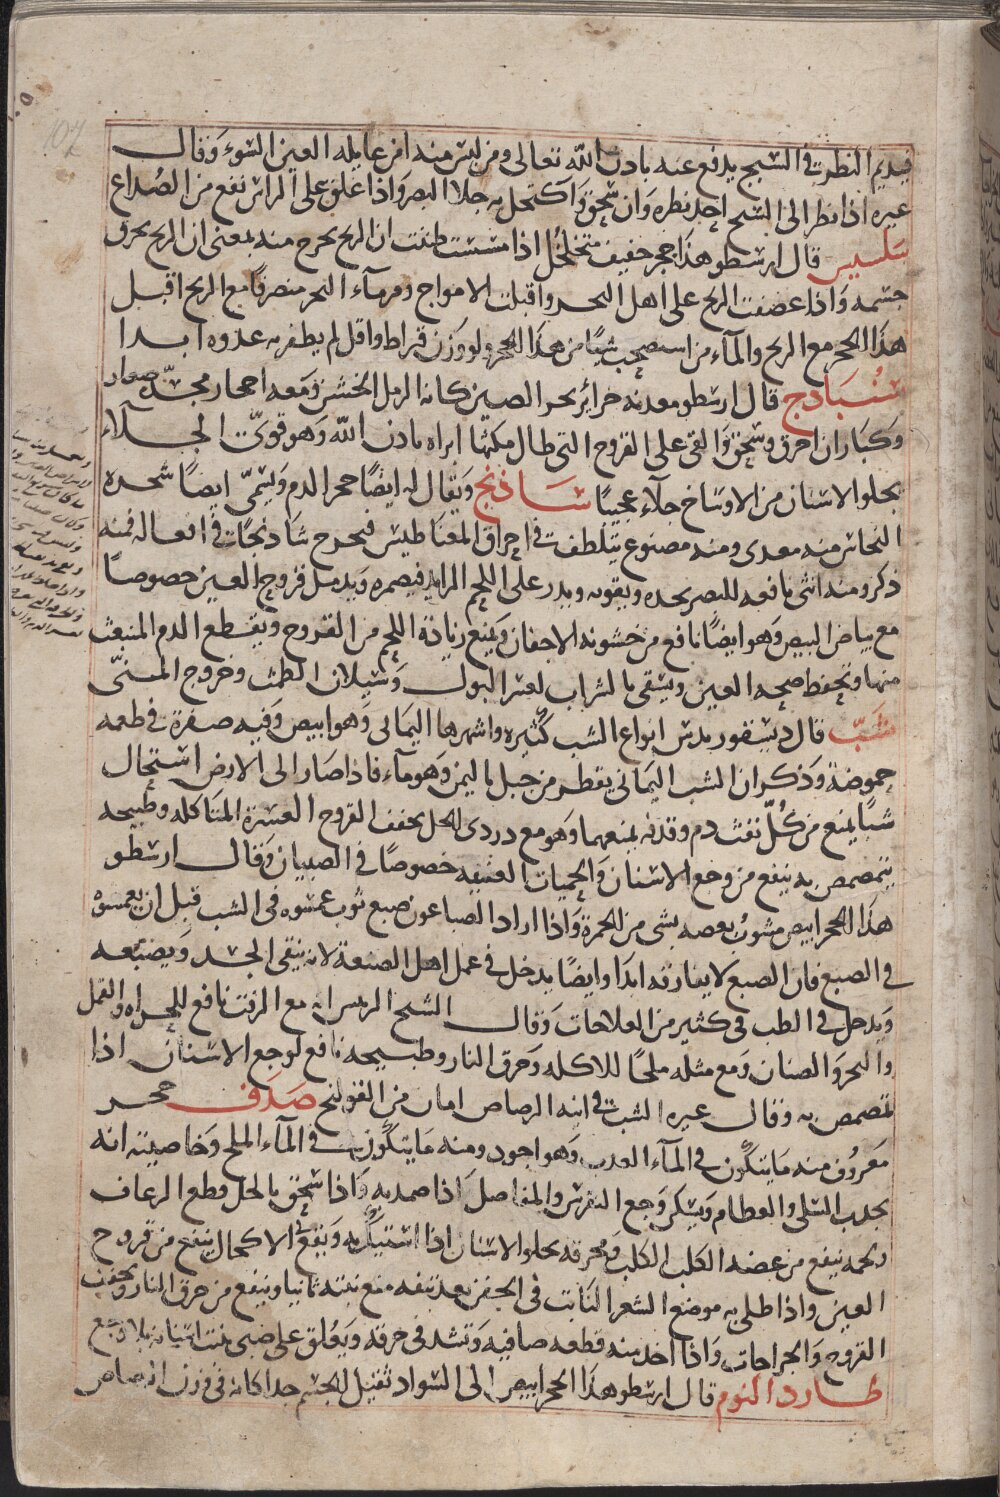 فيديم النظر في السبج يدفع عنه باذن الله تعالى ومن ليس منه امن عايله العين السوء وقال
غيره اذا نظر الى السبج احد نظره وان سحق واكتحل به جلا البصر واذا علق على الراس نفع من الصداع
سلسيس قال ارسطو هذا حجر خفيف متخلخل اذا مسسته ظننت ان الريح يخرج منه بمعنى ان الريح يخرق
جسمه واذا عصفت الريح على اهل البحر واقبلت الامواج ومرماء البحر منصرفا مع الريح اقبل
هذا الحجر مع الريح والماء من استصحب شيا من هذا الحجر ولو وزن قيراط واقل لم يظفر به عدوه ابدا
سنباذج قال ارسطو معدنه جزائر بحر الصين كانه الرمل الخشن ومعه احجار مجسده صغار
وكبار ان احرق وسحق والقى على القروح التي طال مكثها ابراه باذن الله وهو قوى الجلاء
يجلو الاسنان من الاوساخ جلاء عجيبا شاذنج ويقال له ايضا حجر الدم ويسمى ايضا شحره
النحاس منه معدى ومنه مصنوع يتلطف في احراق المغناطيس فيخرج شاذنجات في افعاله فمنه
ذكر ومنه انثى نافعه للبصر يحده ويقويه ويدر على اللحم الزايد فيضمره ويدمل قروح العين خصوصا
مع بياض البيض وهو ايضا نافع من خشونه الاجفان ويمنع زيادة اللحم من القروح ويقطع الدم المنبعث
منها ويحفظ صحه العين ويسقى بالشراب لعسر البول وسيلان الطمث وخروج المنى
شب قال ديسقوريدس انواع الشب كثيره واشهرها اليمانى وهو ابيض وفيه صفرة في طعمه
حموضة وذكر ان الشب اليمانى يقطر من جبل باليمن وهو ماء فاذا صار الى الارض استحال
شبا يمنع من كل نفث دم وقذفه يمنعهما وهو مع دردى الخل يجفف القروح العسرة المتاكله وطبيخه
يتمضمض به ينفع من وجع الاسنان والحميات العتيقه خصوصا في الصبيان وقال ارسطو
هذا الحجر ابيض مشوب بعضه بشى من الحمرة واذا اراد الصباغون صبغ ثوب غمسوه في الشب قبل ان يغمسوه
في الصبغ فان الصبغ لا يفارقه ابدا وايضا يدخل في عمل اهل الصنعة لانه ينقى الجسد ويصبغه
ويدخل في الطب في كثير من العلاجات وقال الشيخ الرئيس انه مع الزفت نافع للجراه والقمل
والبخر والصنان ومع مثله ملحا للاكله وحرق النار وطبيخه نافع لوجع الاسنان اذا
تمضمض به وقال غيره الشب في انيه الرصاص امان من القولنج صدف حجر
معروف منه ما يتكون في الماء العذب وهو اجود ومنه ما يتكون في الماء الملح وخاصيته انه
يجذب السلى والعظام ويسكن وجع النقرس والمفاصل اذا ضمد به واذا سحق بالخل قطع الرعاف
ولحمه ينفع من عضه الكلب الكلب ومحرقه يجلو الاسنان اذا استيك به ويقع في الاكحال ينفع من قروح
العين واذا طلى به موضع الشعر النابت في الجفن بعد نتفه منع نبته ثانيا وينفع من حرق النار ويجفف
القروح والجراحات واذا اخذ منه قطعه صافيه وتشد في خرقه ويعلق على صبى نبت اسنانه بلا وجع
طارد النوم قال ارسطو هذا الحجر ابيض الى السواد ثقيل الجسم جدا كانه في وزن الرصاص
107